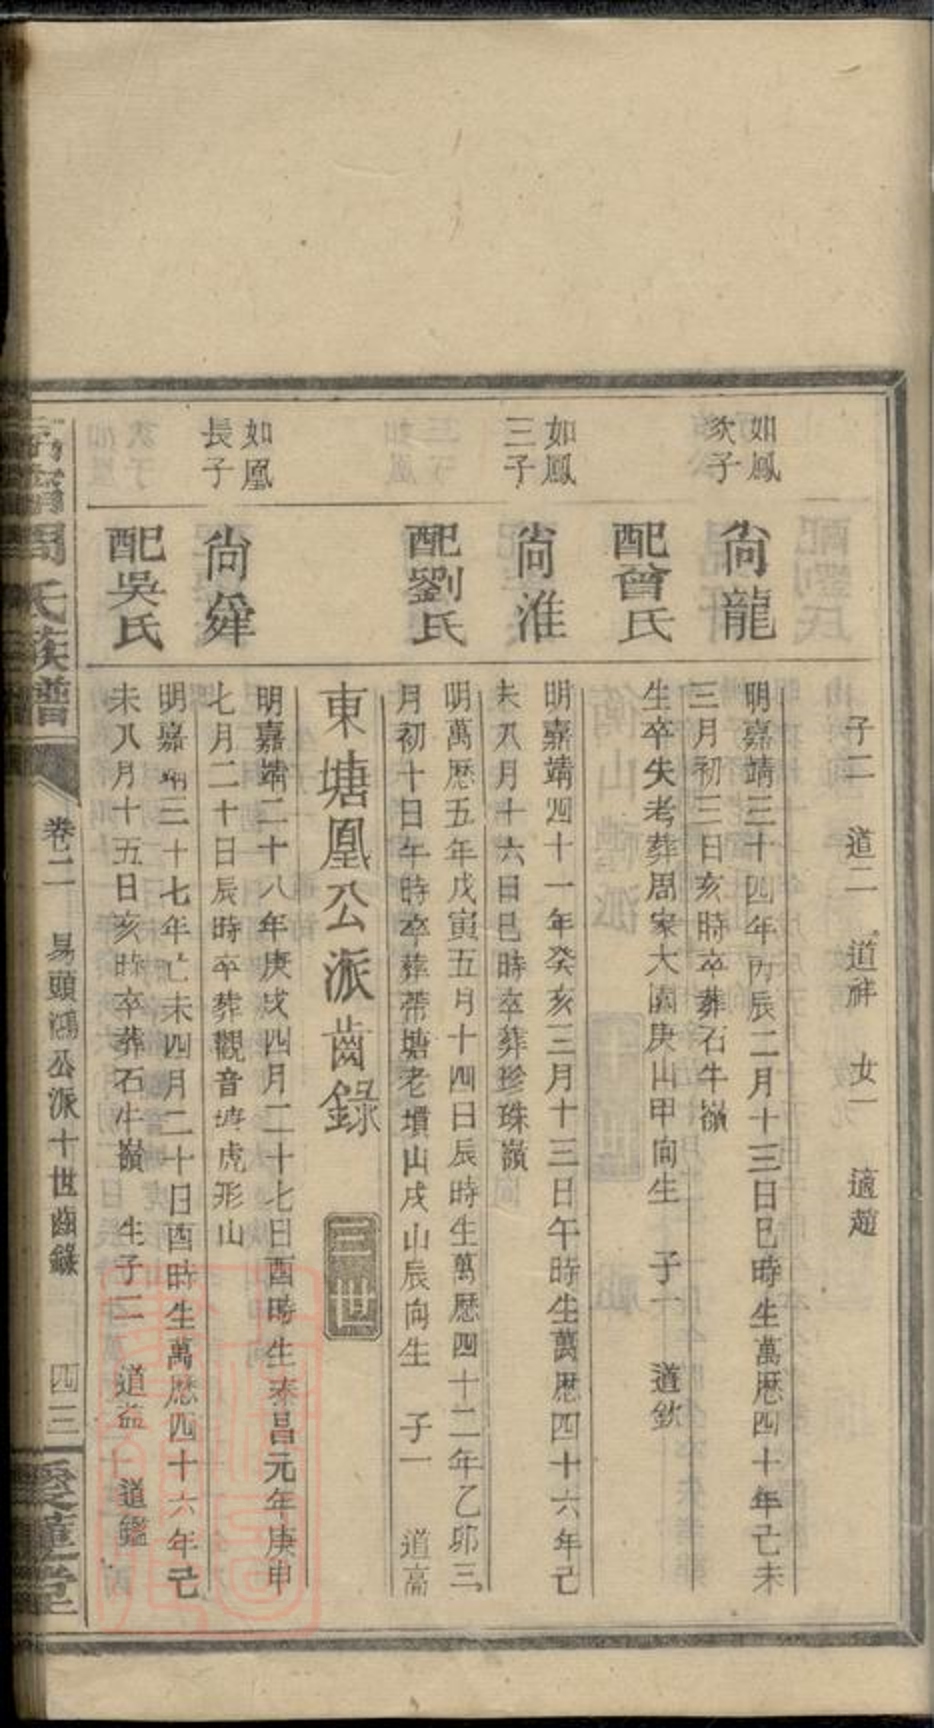 子二 道二 道祥 女一 適趙
如鳳
次子
尚龍
明嘉靖三十四年丙辰二月十三日巳時生萬厯四十年己未
三月初三日亥時卒葬石牛嶺
配曾氏
生卒失考葬周家大園庚山甲向生 子一 道欽
如鳳
三子
尚淮
明嘉靖四十一年癸亥三月十三日午時生萬厯四十六年己
未八月十六日巳時卒葬珍珠嶺
配劉氏
明萬厯五年戊寅五月十四日辰時生萬厯四十二年乙卯三
月初十日午時卒葬帶塘老墳山戌山辰向生 子一 道高
東塘凰公派齒錄 三世
如凰
長子
尚舜
明嘉靖二十八年庚戌四月二十七日酉時生泰昌元年庚申
七月二十日辰時卒葬觀音塘虎形山
配吳氏
明嘉靖三十七年己未四月二十日酉時生萬厯四十六年己
未八月十五日亥時卒葬石牛嶺 生子二 道益 道鑑
周氏族譜
卷二 易頭鴻公派十世齒錄 四三
愛蓮堂